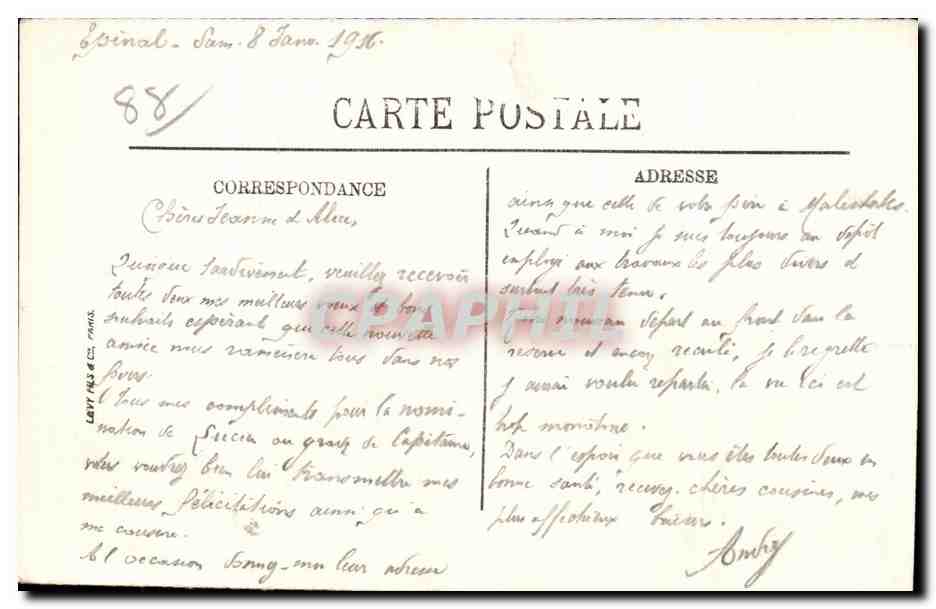 Epinal - Sam. 8 Janv. 1916.
88/
CARTE POSTALE
CORRESPONDANCE
Chères Jeanne et Alice,
Quoique tardivement, veuillez recevoir
toutes deux mes meilleurs voeux et bons
souhaits espérant que cette nouvelle
année nous ramènera tous dans nos
foyers.
Tous mes compliments pour la nomi-
nation de Lucien au grade de Capitaine,
vous voudrez bien lui transmettre mes
meilleures félicitations ainsi qu'à
ma cousine.
A l'occasion donnez-moi leur adresse
ADRESSE
ainsi que celle de votre père à
Quand à moi je suis toujours au dépôt
employé aux travaux les plus divers et
surtout très tenu.
nouveau départ au front dans la
réserve et encore reculé, je le regrette
j'aurai voulu repartir, la vie ici est
trop monotone.
Dans l'espoir que vous êtes toutes deux en
bonne santé, recevez chères cousines, mes
plus affectueux baisers.
André
LEVY FILS & Cie, PARIS.
CPAPHIL